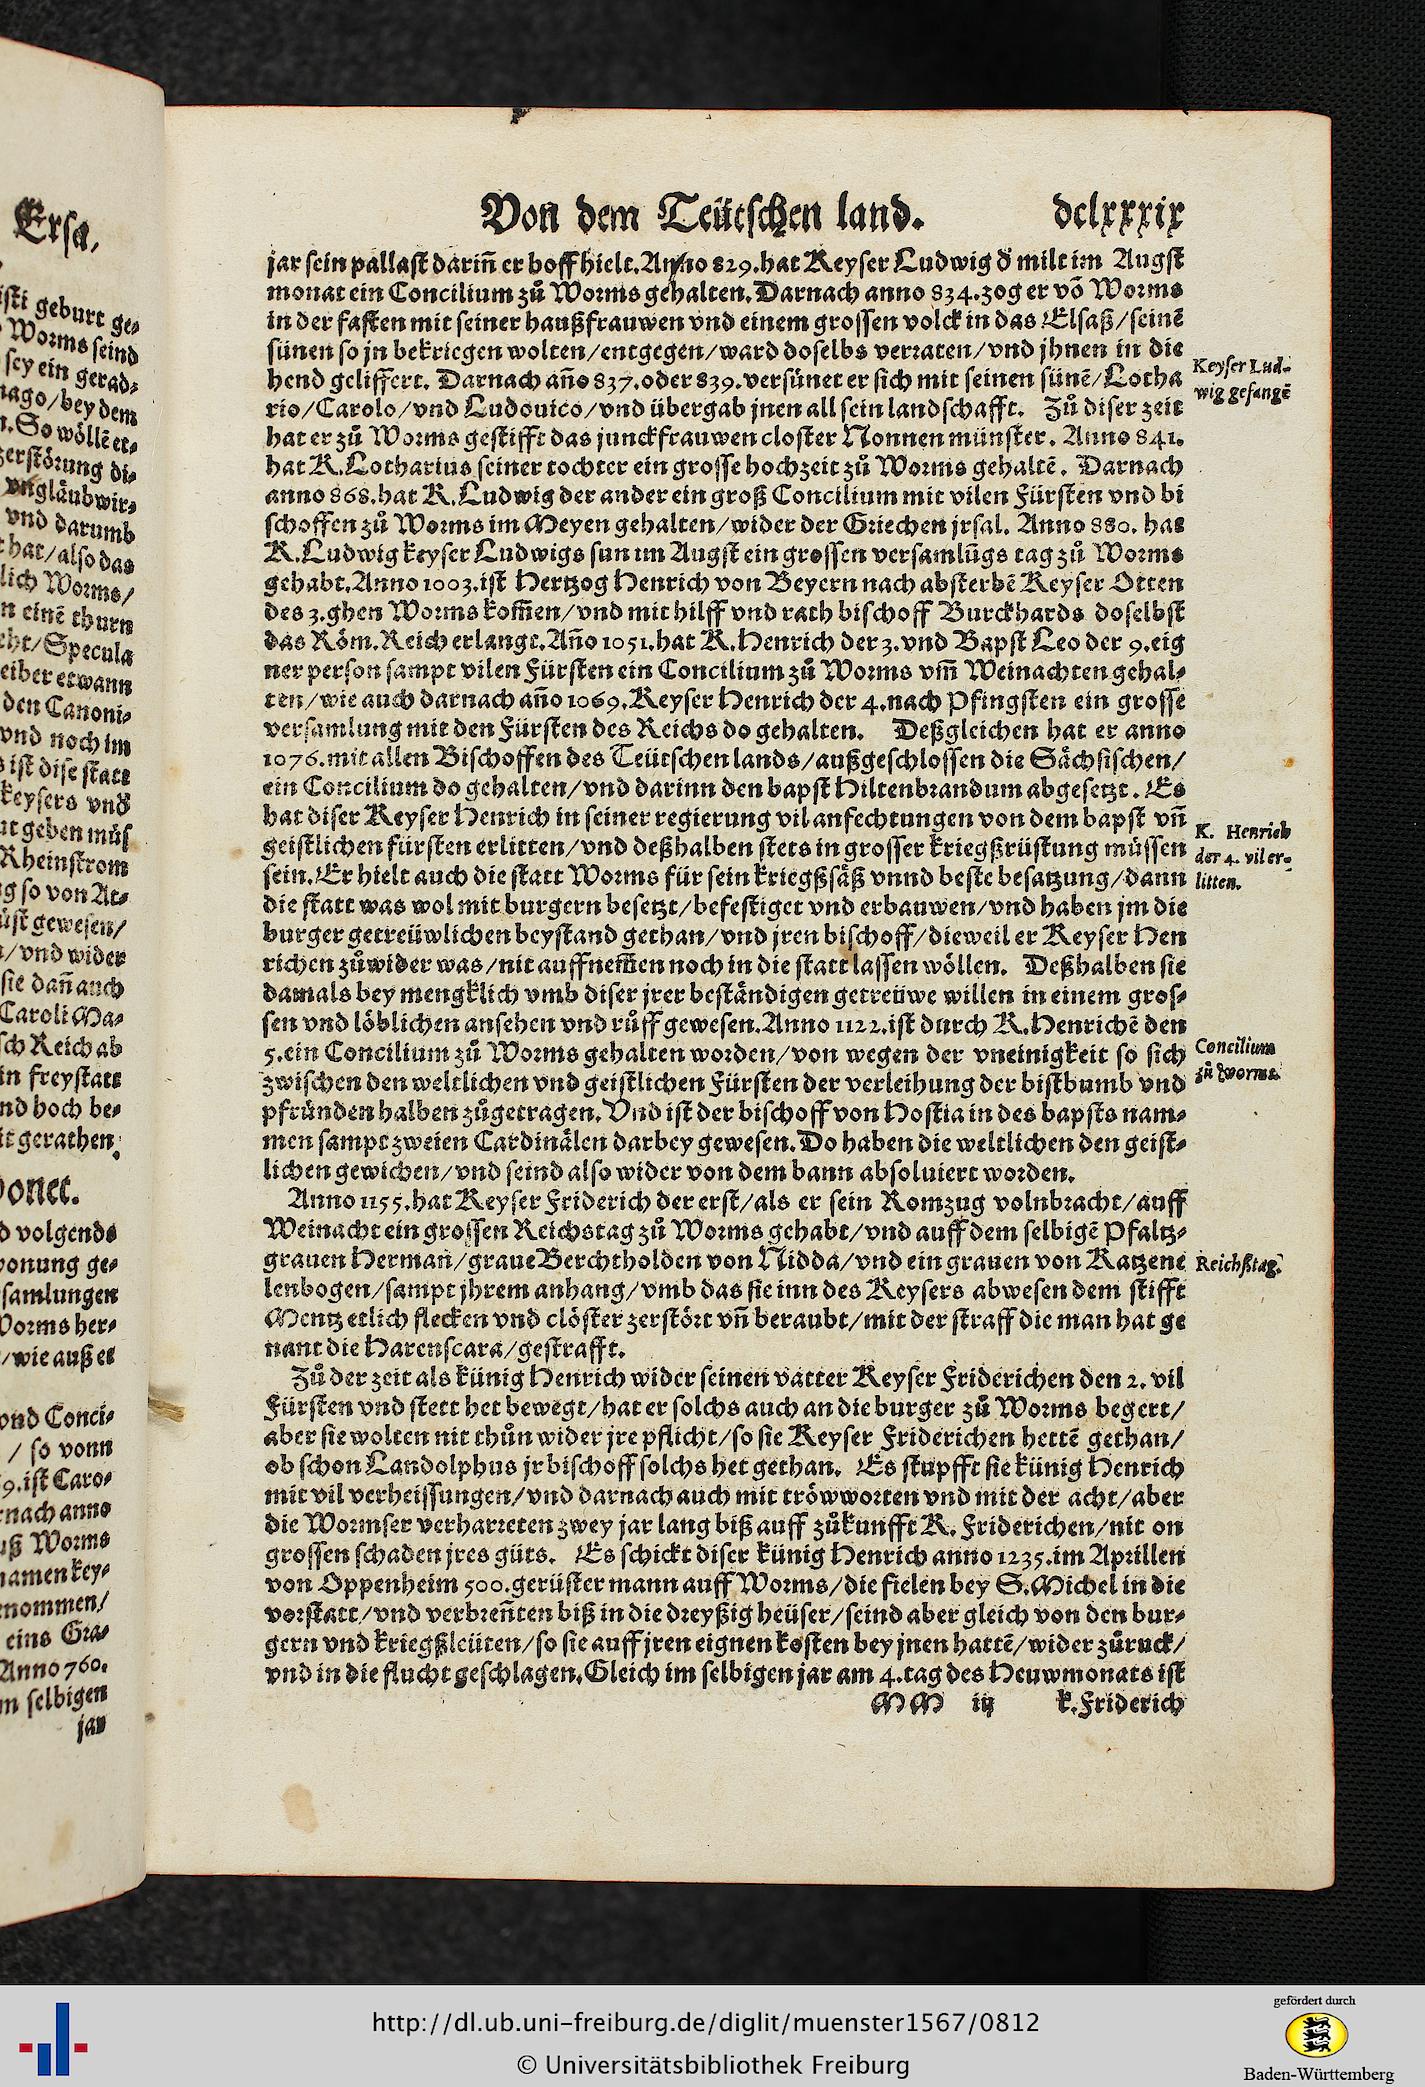 Ersa,
isti geburt ge⸗
Worms seind
sey ein gerad⸗
nago/bey dem
n. So wöllē et⸗
zerstörung di⸗
vngläubwir⸗
vnd darumb
hat/also das
lich Worms/
n einē thurn
cht/Specula
eiber etwann
den Canoni⸗
vnd noch im
ist dise statt
keysers vnd
ut geben müs
Rheinstrom
g so von At⸗
üst gewesen/
/vnd wider
sie dañ auch
Caroli Ma⸗
sch Reich ab
in freystatt
nd hoch be⸗
it gerathen.
onet.
d volgends
onung ge⸗
samlungen
Worms her⸗
/wie auß et
vnd Conci⸗
/ so vonn
9. ist Caro⸗
rnach anno
uß Worms
namen key⸗
nommen/
eins Gra⸗
Anno 760.
m selbigen
jar
Von dem Teütschen land. dclxxxix
jar sein pallast dariñ er hoff hielt. Anno 829. hat Keyser Ludwig ď milt im Augst
monat ein Concilium zů Worms gehalten. Darnach anno 834. zog er vō Worms
in der fasten mit seiner haußfrauwen vnd einem grossen volck in das Elsaß/seinē
sünen so jn bekriegen wolten/entgegen/ward doselbs verraten/vnd jhnen in die
hend geliffert. Darnach año 837. oder 839. versünet er sich mit seinen sünē/Lotha
rio/Carolo/vnd Ludouico/vnd übergab jnen all sein landschafft. Zů diser zeit
hat er zů Worms gestifft das junckfrauwen closter Nonnen münster. Anno 841.
hat K. Lotharius seiner tochter ein grosse hochzeit zů Worms gehaltē. Darnach
anno 868. hat K. Ludwig der ander ein groß Concilium mit vilen Fürsten vnd bi
schoffen zů Worms im Meyen gehalten/wider der Griechen jrsal. Anno 880. hat
K. Ludwig keyser Ludwigs sun im Augst ein grossen versamlūgs tag zů Worms
gehabt. Anno 1003. ist Hertzog Henrich von Beyern nach absterbē Keyser Otten
des 3. ghen Worms kom̃en/vnd mit hilff vnd rath bischoff Burckhards doselbst
das Röm. Reich erlangt. Año 1051. hat K. Henrich der 3. vnd Bapst Leo der 9. eig
ner person sampt vilen Fürsten ein Concilium zů Worms vm̃ Weinachten gehal⸗
ten/wie auch darnach año 1069. Keyser Henrich der 4. nach Pfingsten ein grosse
versamlung mit den Fürsten des Reichs do gehalten. Deßgleichen hat er anno
1076. mit allen Bischoffen des Teütschen lands/außgeschlossen die Sächsischen/
ein Concilium do gehalten/vnd darinn den bapst Hiltenbrandum abgesetzt. Es
hat diser Keyser Henrich in seiner regierung vil anfechtungen von dem bapst vñ
geistlichen fürsten erlitten/vnd deßhalben stets in grosser kriegßrüstung müssen
sein. Er hielt auch die statt Worms für sein kriegßsäß vnnd beste besatzung/dann
die statt was wol mit burgern besetzt/befestiget vnd erbauwen/vnd haben jm die
burger getreüwlichen beystand gethan/vnd jren bischoff/dieweil er Keyser Hen
richen zůwider was/nit auffnem̃en noch in die statt lassen wöllen. Deßhalben sie
damals bey mengklich vmb diser jrer beständigen getreüwe willen in einem gros⸗
sen vnd löblichen ansehen vnd růff gewesen. Anno 1122. ist durch K. Henrichē den
5. ein Concilium zů Worms gehalten worden/von wegen der vneinigkeit so sich
zwischen den weltlichen vnd geistlichen Fürsten der verleihung der bisthumb vnd
pfründen halben zůgetragen. Vnd ist der bischoff von Hostia in des bapsts nam⸗
men sampt zweien Cardinälen darbey gewesen. Do haben die weltlichen den geist⸗
lichen gewichen/vnd seind also wider von dem bann absoluiert worden.
Anno 1155. hat Keyser Friderich der erst/als er sein Romzug volnbracht/auff
Weinacht ein grossen Reichstag zů Worms gehabt/vnd auff dem selbigē Pfaltz⸗
grauen Herman/graue Berchtholden von Nidda/vnd ein grauen von Katzene
lenbogen/sampt jhrem anhang/vmb das sie inn des Keysers abwesen dem stifft
Mentz etlich flecken vnd clöster zerstört vñ beraubt/mit der straff die man hat ge
nant die Harenscara/gestrafft.
Zů der zeit als künig Henrich wider seinen vatter Keyser Friderichen den 2. vil
Fürsten vnd stett het bewegt/hat er solchs auch an die burger zů Worms begert/
aber sie wolten nit thůn wider jre pflicht/so sie Keyser Friderichen hettē gethan/
ob schon Landolphus jr bischoff solchs het gethan. Es stupfft sie künig Henrich
mit vil verheissungen/vnd darnach auch mit tröwworten vnd mit der acht/aber
die Wormser verharreten zwey jar lang biß auff zůkunfft K. Friderichen/nit on
grossen schaden jres gůts. Es schickt diser künig Henrich anno 1235. im Aprillen
von Oppenheim 500. gerüster mann auff Worms/die fielen bey S. Michel in die
vorstatt/vnd verbreñten biß in die dreyßig heüser/seind aber gleich von den bur⸗
gern vnd kriegßleüten/so sie auff jren eignen kosten bey jnen hattē/wider zůruck/
vnd in die flucht geschlagen. Gleich im selbigen jar am 4. tag des Heuwmonats ist
MM iij k. Friderich
Keyser Lud-
wig gefangē
K. Henrich
der 4. vil er-
litten.
Concilium
zů worms.
Reichßtag.
http://dl.ub.uni-freiburg.de/diglit/muenster1567/0812
© Universitätsbibliothek Freiburg
gefördert durch
Baden-Württemberg